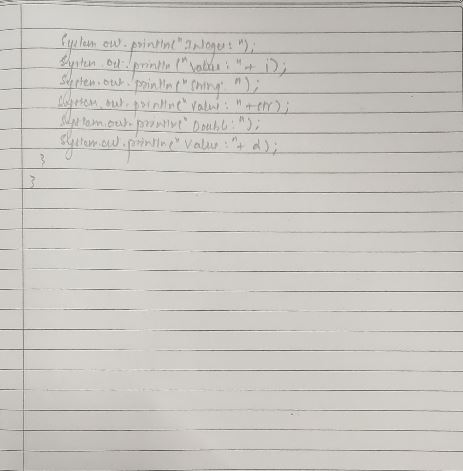 System.out.println("Integer: ");
System.out.println("Value: "+ i);
System.out.println("String: ");
System.out.println("Value: "+str);
System.out.println("Double: ");
System.out.println("Value: "+ d);
}
}